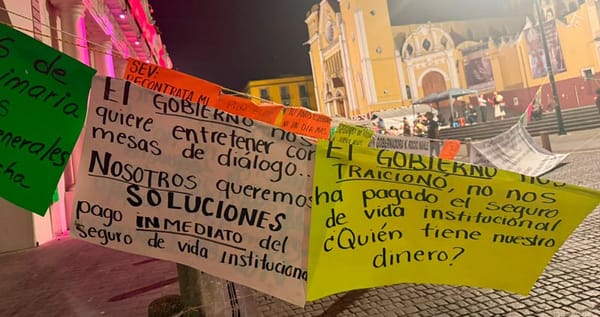 S de
rimaria
s
nerales
cha
SEV:
RECONTRATA MI
El GOBIERNO nos
quiere entretener con
mesas de diálogo..
NOSOTROS queremos
SOLUCIONES
pago INMEDIATO del
seguro de vida instituciona
El GOBIERNO nos
TRAICIONÓ, no nos
ha pagado el seguro
de vida institucional
¿Quién tiene nuestro
dinero?